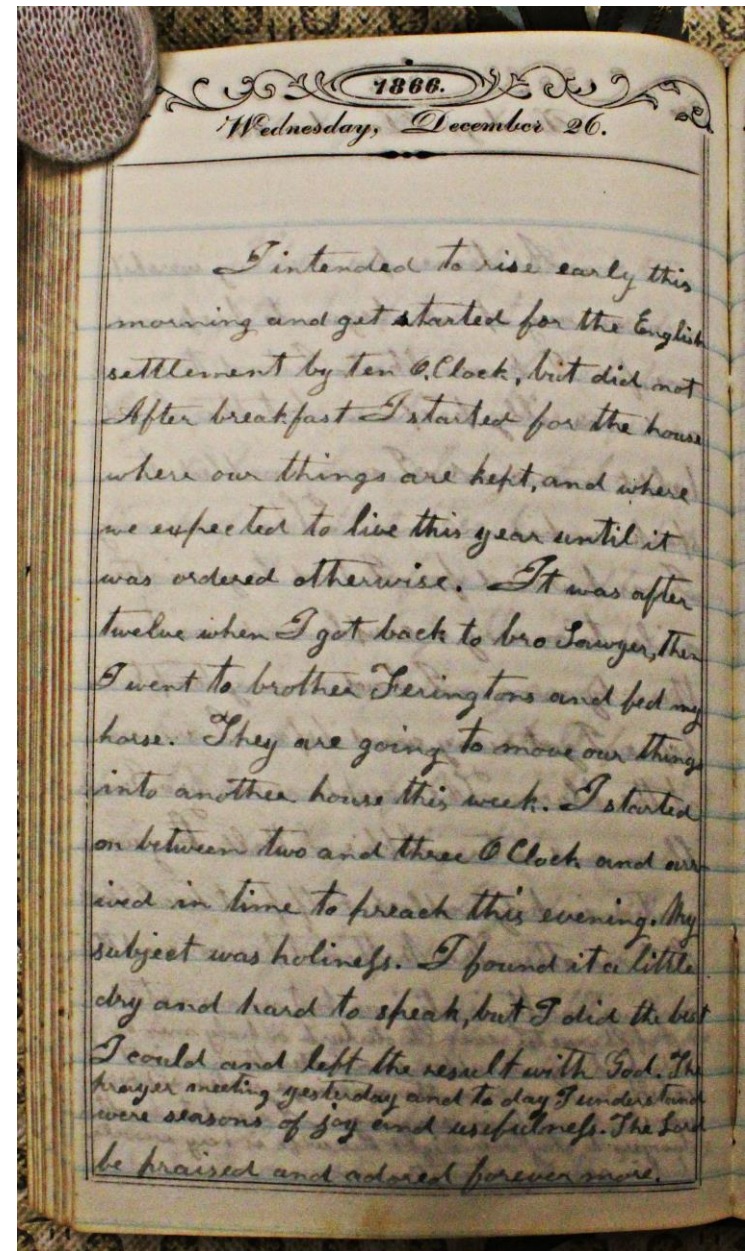 1866.
Wednesday, December 26.
I intended to rise early this
morning and get started for the English
settlement by ten O,Clock, but did not
After breakfast I started for the house
where our things are kept, and where
we expected to live this year until it
was ordered otherwise. It was after
twelve when I got back to bro Sawyer, then
I went to brother Feringtons and fed my
horse. They are going to move our things
into another house this week. I started
on between two and three O Clock and arr-
ived in time to preach this evening. My
subject was holineſs. I found it a little
dry and hard to speak, but I did the best
I could and left the result with God. The
prayer meeting yesterday and to day I understand
were seasons of joy and usefulneſs. The Lord
be praised and adored forever more.